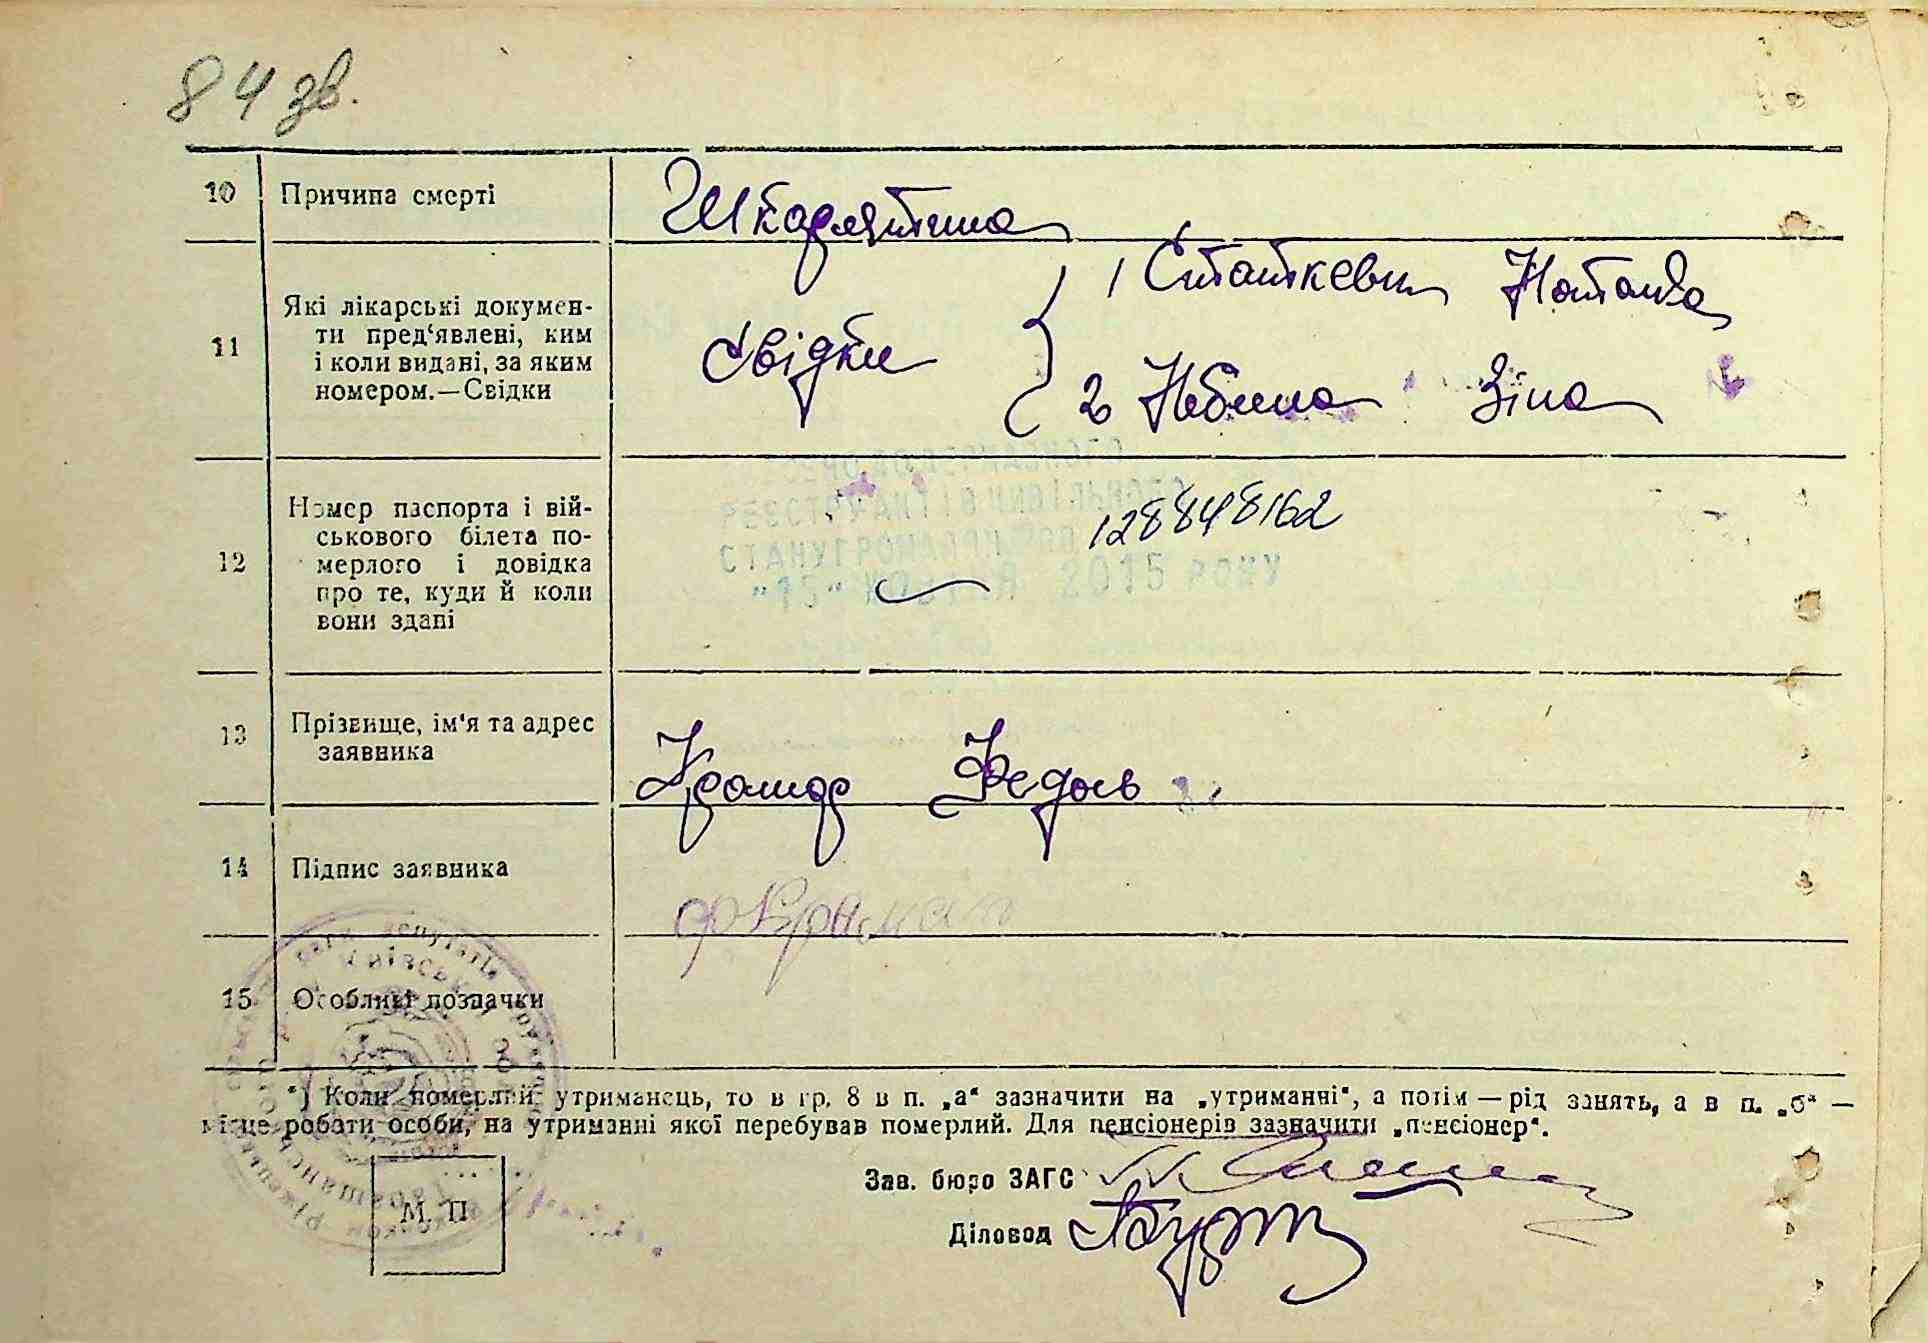 84 зв.
10 Причина смерті Шкарлятина
11 Які лікарські докумен-
ти пред'явлені, ким
і коли видані, за яким
номером.—Свідки
Свідки
1 Статкевич Наталка
2 Небилиа Зіна
12 Номер паспорта і вій-
ськового білета по-
мерлого і довідка
про те, куди й коли
вони здані
ДО ДЕРЖАВНОГО
РЕЄСТРУ АКТІВ ЦИВІЛЬНОГО
СТАНУ ГРОМАДЯН
"15" 2015 РОКУ
128848162
13 Прізвище, ім'я та адрес
заявника
Крамар Федось
14 Підпис заявника
15 Особливі позначки
*) Коли померлий утриманець, то в гр. 8 в п. „а“ зазначити на „утриманні“, а потім — рід занять, а в п. „б“ —
місце роботи особи, на утриманні якої перебував померлий. Для пенсіонерів зазначити „пенсіонер“.
Зав. бюро ЗАГС
Діловод
М. П